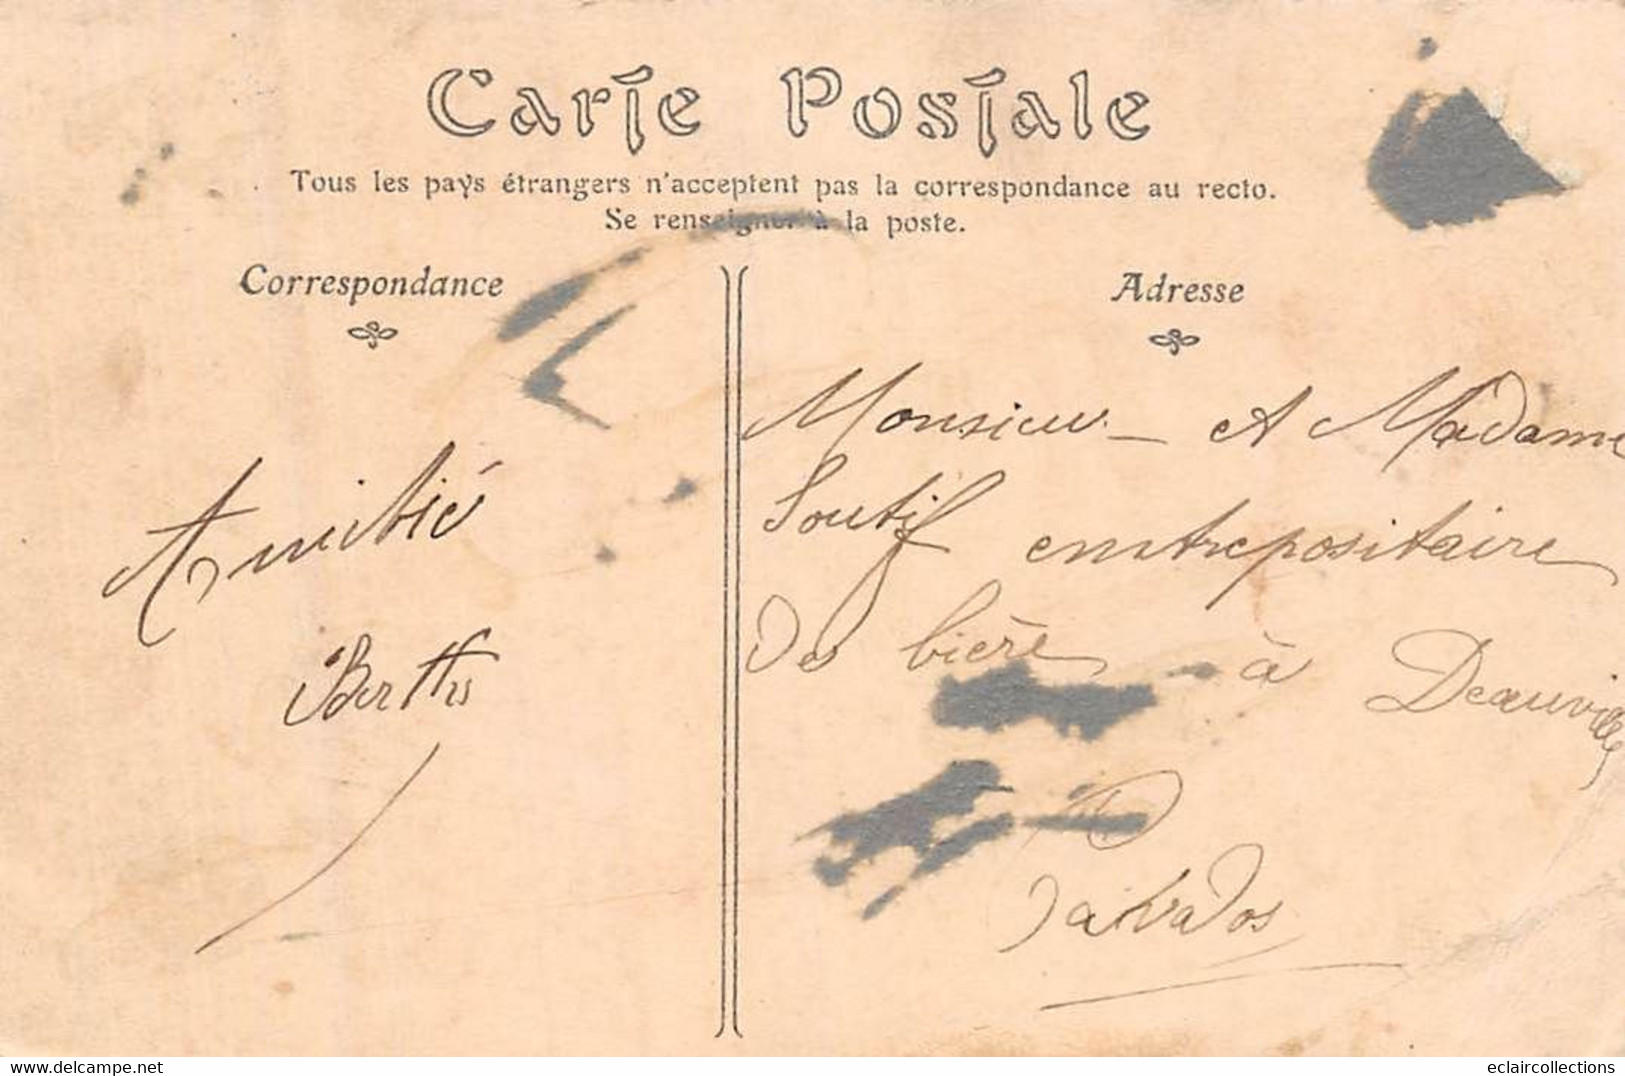 Carte Postale
Tous les pays étrangers n'acceptent pas la correspondance au recto.
Se renseigner à la poste.
Correspondance
Adresse
Amitié
Berthe
Monsieur et Madame
Soutif entrepositaire
de bière à Deauville
Calvados
www.delcampe.net
eclaircollections